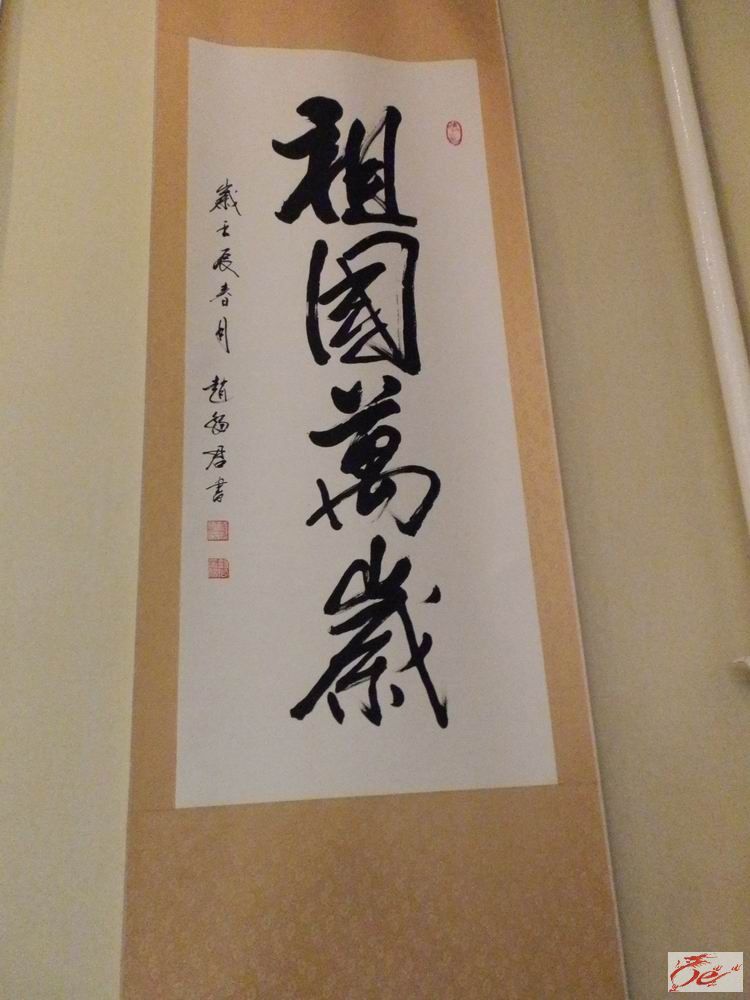 祖國萬歲
歲壬辰春月 趙
書